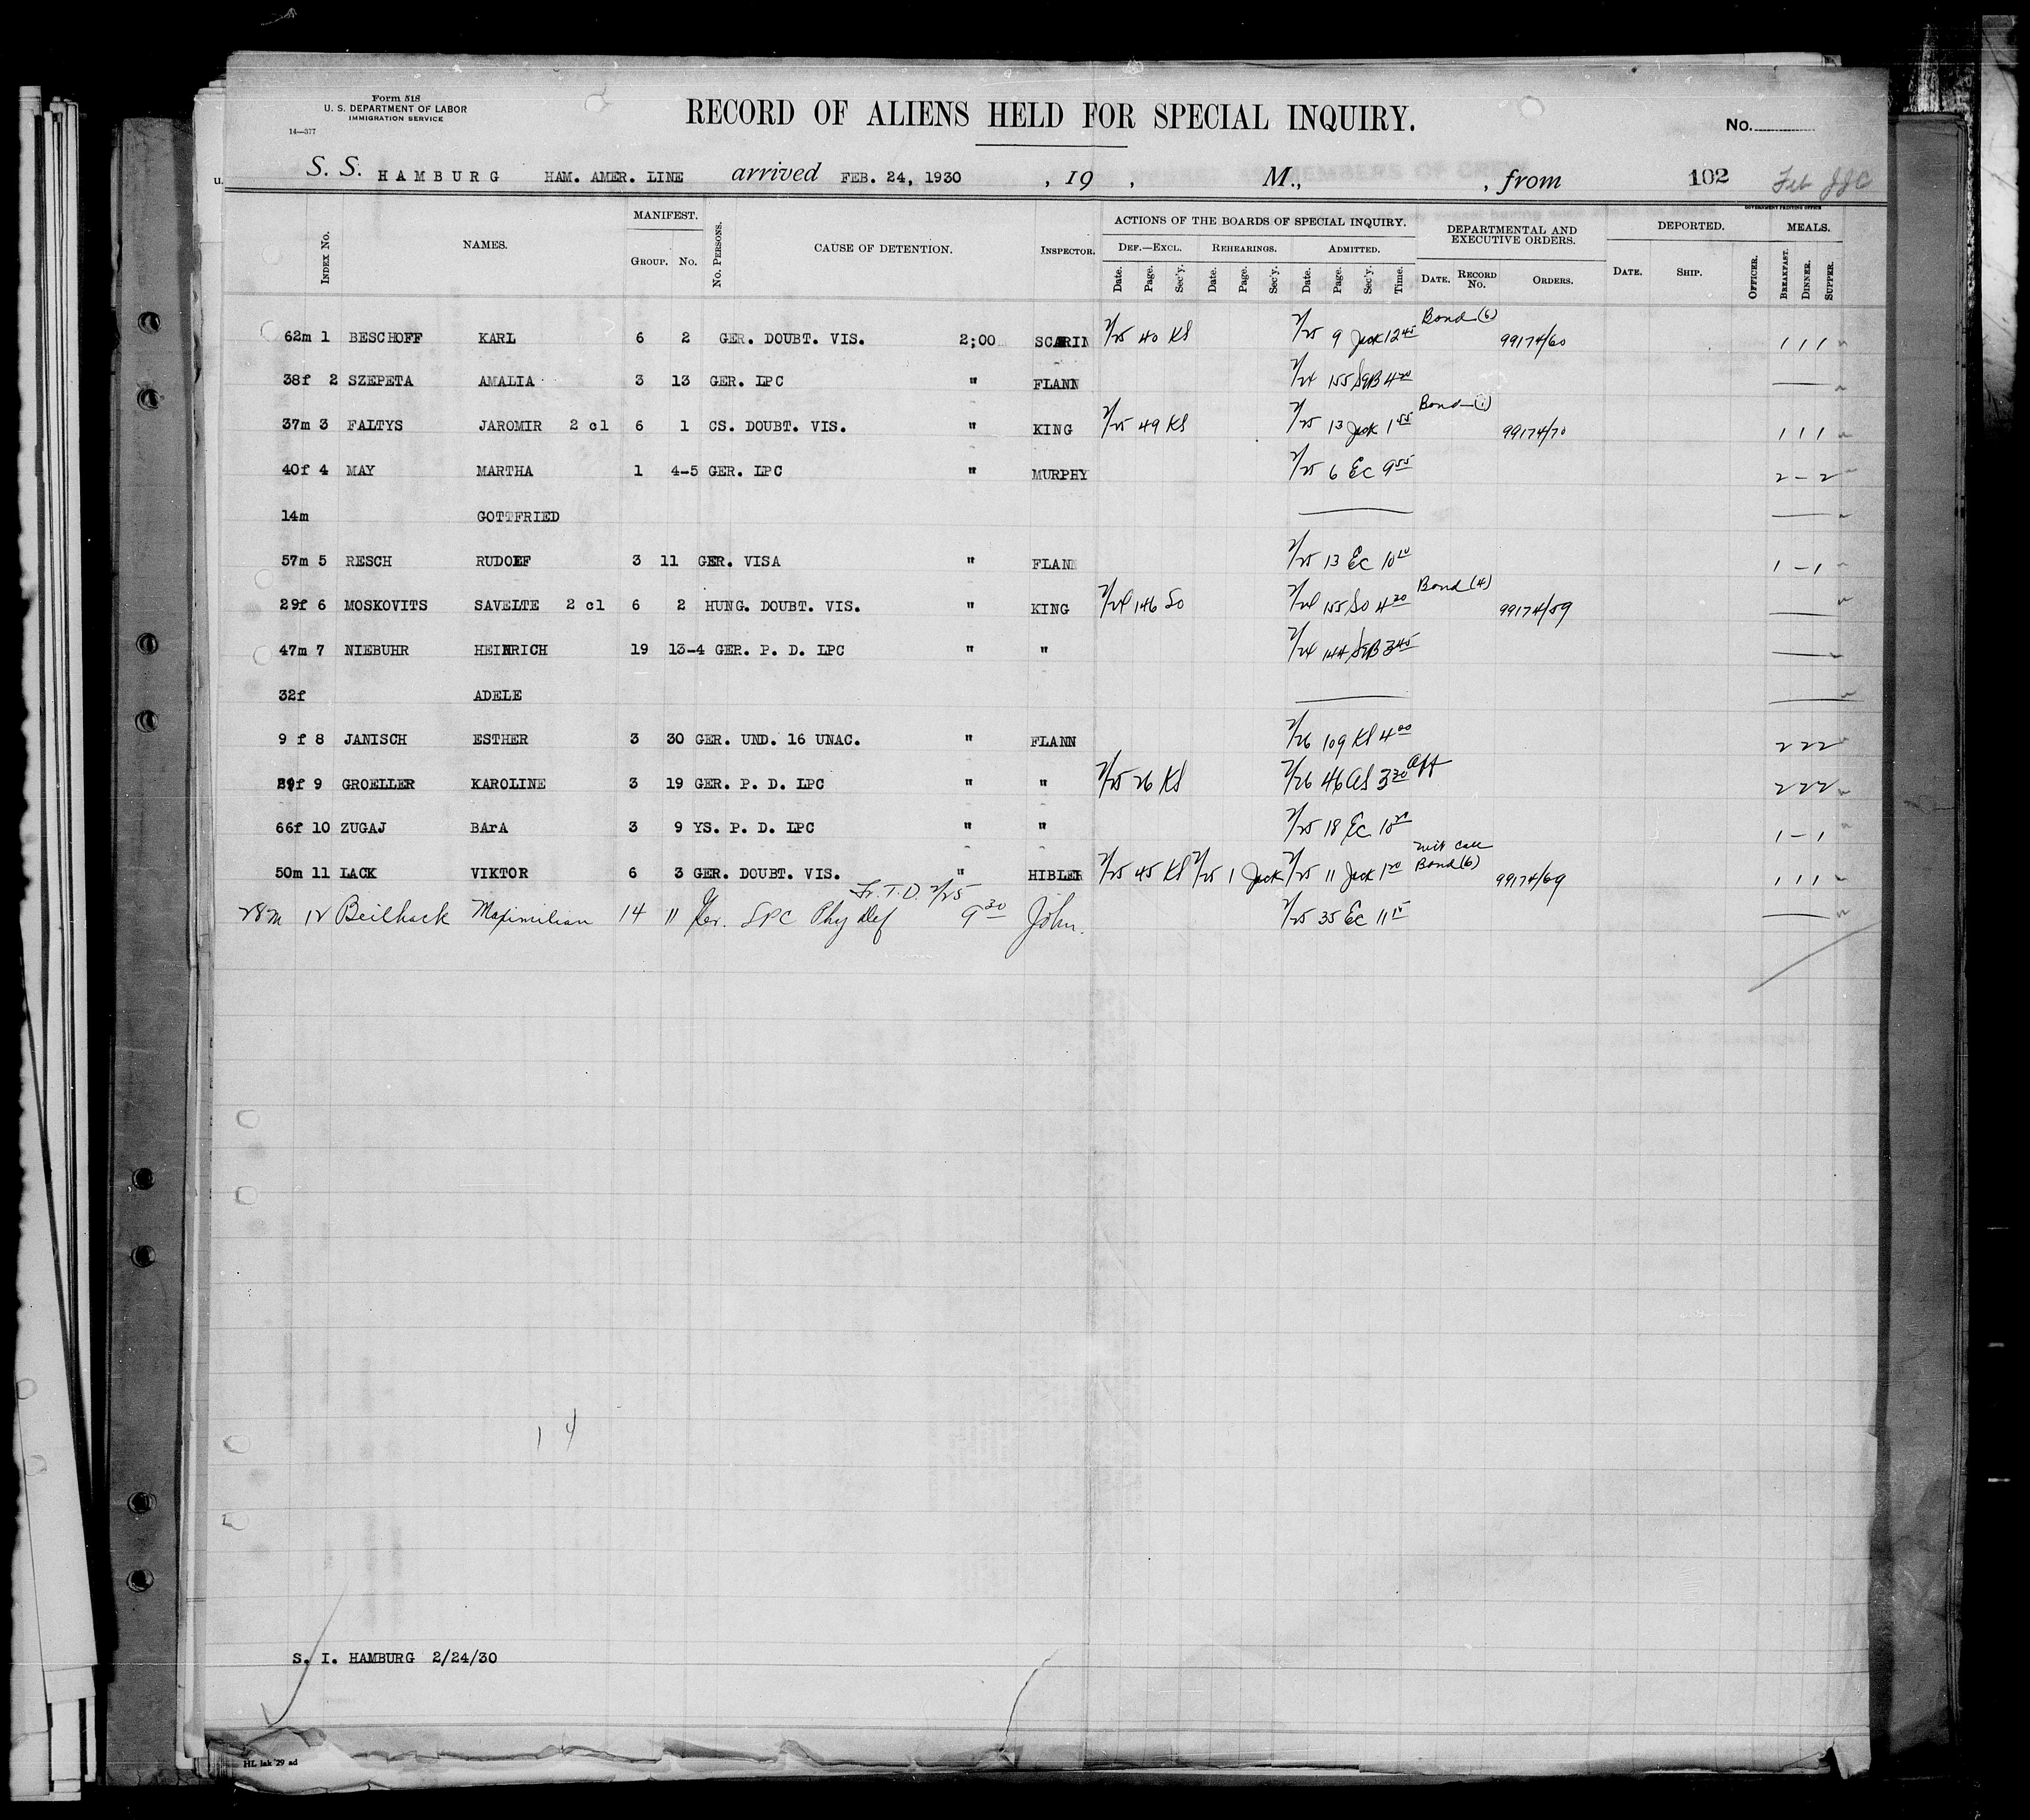 Form 518
U. S. DEPARTMENT OF LABOR
IMMIGRATION SERVICE
14—377
RECORD OF ALIENS HELD FOR SPECIAL INQUIRY.
No.
S. S. HAMBURG HAM. AMER. LINE arrived FEB. 24, 1930 , 19 , M., , from 102 Feb JJC
GOVERNMENT PRINTING OFFICE
INDEX NO. NAMES. MANIFEST. GROUP. NO. NO. PERSONS. CAUSE OF DETENTION. INSPECTOR. ACTIONS OF THE BOARDS OF SPECIAL INQUIRY. DEPARTMENTAL AND EXECUTIVE ORDERS. DEPORTED. MEALS.
DEF.—EXCL. REHEARINGS. ADMITTED.
Date. Page. Sec'y. Date. Page. Sec'y. Date. Page. Sec'y. Time. DATE. RECORD NO. ORDERS. DATE. SHIP. OFFICER. BREAKFAST. DINNER. SUPPER.
62m 1 BESCHOFF KARL 6 2 GER. DOUBT. VIS. 2;00 SCARIN 2/25 40 KS 2/25 9 Jack 12 45 Bond (6) 99174/60 1 1 1
38f 2 SZEPETA AMALIA 3 13 GER. LPC " FLANN 2/24 155 SgB 4 20
37m 3 FALTYS JAROMIR 2 cl 6 1 CS. DOUBT. VIS. " KING 2/25 49 KS 2/25 13 Jack 1 55 Bond (1) 99174/70 1 1 1
40f 4 MAY MARTHA 1 4-5 GER. LPC " MURPHY 2/25 6 Ec 9 55 2 – 2
14m GOTTFRIED
57m 5 RESCH RUDOEF 3 11 GER. VISA " FLANN 2/25 13 Ec 10 10 1 – 1
29f 6 MOSKOVITS SAVELTE 2 cl 6 2 HUNG. DOUBT. VIS. " KING 2/24 146 So 2/24 155 So 4 20 Bond (4) 99174/59
47m 7 NIEBUHR HEINRICH 19 13-4 GER. P. D. LPC " " 2/24 144 SgB 3 45
32f ADELE
9 f 8 JANISCH ESTHER 3 30 GER. UND. 16 UNAC. " FLANN 2/26 109 KS 4 00 2 2 2
9 GROELLER KAROLINE 3 19 GER. P. D. LPC " " 2/25 26 KS 2/26 46 AS 3 30 Aft 2 2 2
66f 10 ZUGAJ BArA 3 9 YS. P. D. LPC " " 2/25 18 Ec 10 20 1 – 1
50m 11 LACK VIKTOR 6 3 GER. DOUBT. VIS. " HIBLER 2/25 45 KS 2/25 1 Jack 2/25 11 Jack 1 20 will call Bond (6) 99174/69 1 1 1
Fr. T. D. 2/25
28m 12 Beilhack Maximilian 14 11 Ger. LPC Phy Def 9 30 John. 2/25 35 Ec 11 15
14
S. I. HAMBURG 2/24/30
HL lak '29 ad